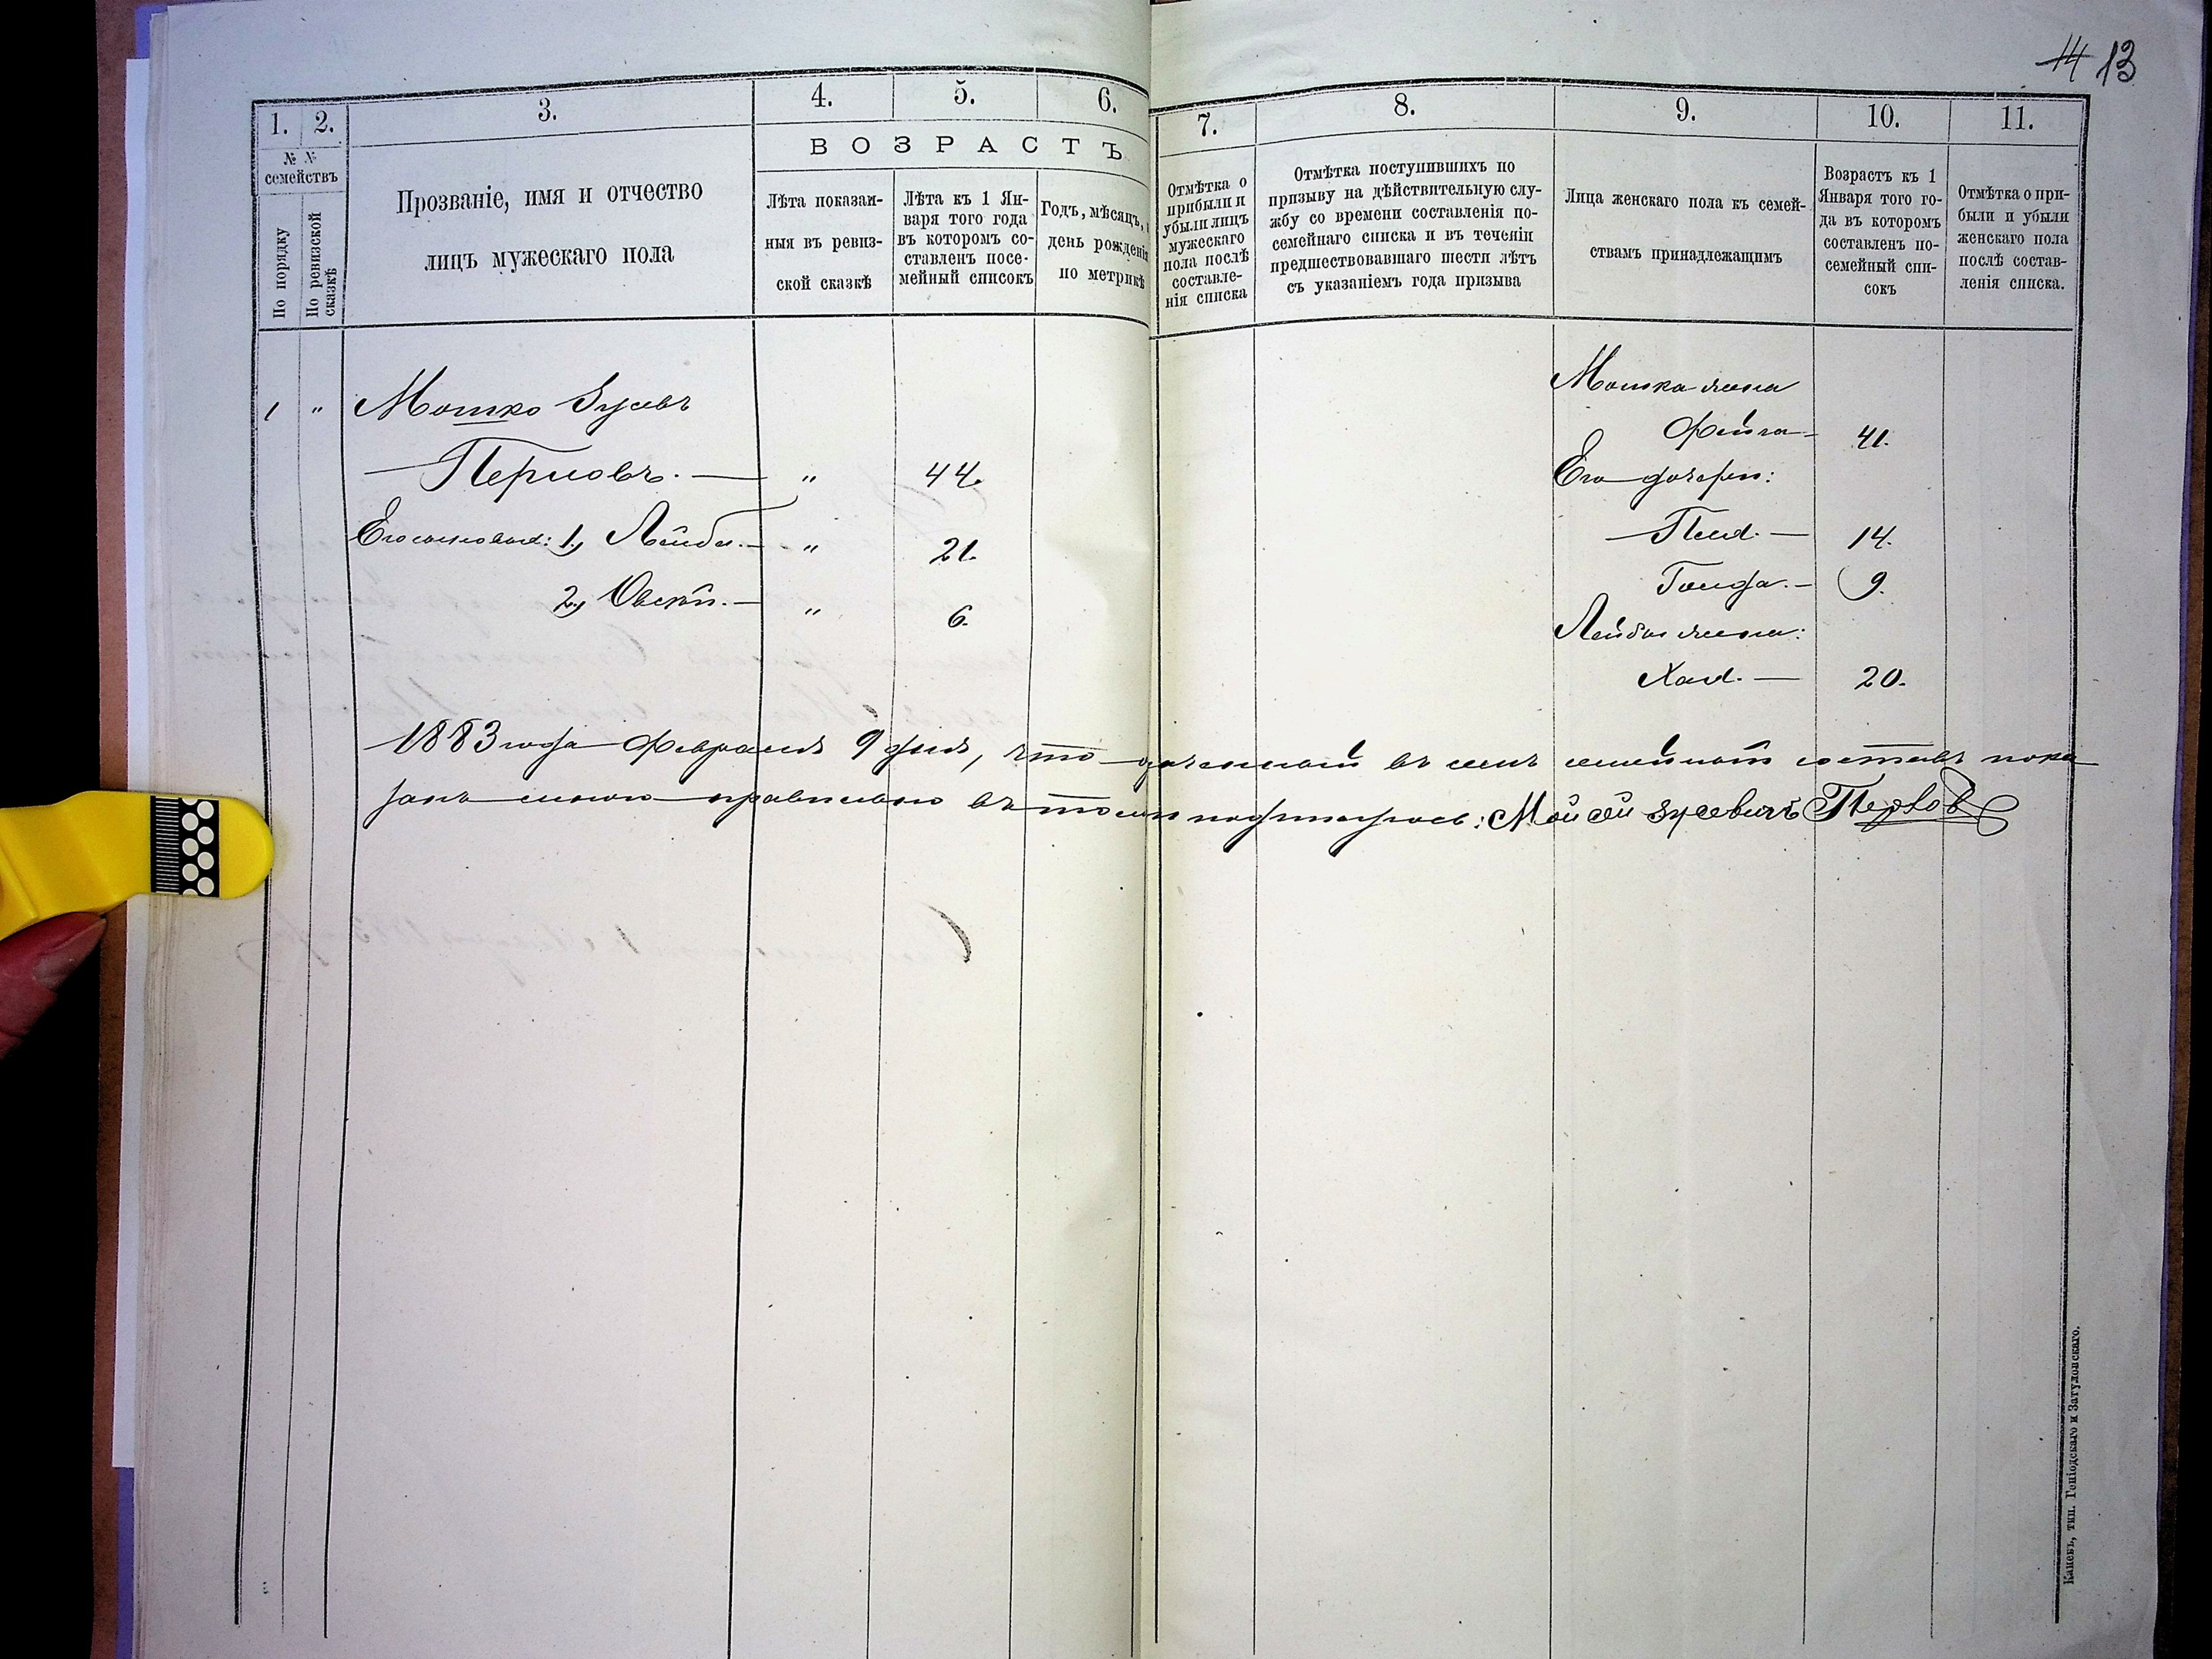 14 13
1. 2. 3. 4. 5. 6. 7. 8. 9. 10. 11.
ВОЗРАСТЪ
№ №
семействъ
По порядку
По ревизской
сказкѣ
Прозваніе, имя и отчество
лицъ мужескаго пола
Лѣта показан-
ныя въ ревиз-
ской сказкѣ
Лѣта къ 1 Ян-
варя того года
въ котором со-
ставленъ посе-
мейный списокъ
Годъ, мѣсяцъ,
день рожденія
по метрикѣ
Отмѣтка о
прибыли и
убыли лицъ
мужескаго
пола послѣ
составле-
нія списка
Отмѣтка поступившихъ по
призыву на дѣйствительную слу-
жбу со времени составленія по-
семейнаго списка и въ теченіи
предшествовавшаго шести лѣтъ
съ указаніемъ года призыва
Лица женскаго пола къ семей-
ствамъ принадлежащимъ
Возрастъ къ 1
Января того го-
да въ которомъ
составлен по-
семейный спи-
сокъ
Отмѣтка о при-
были и убыли
женскаго пола
послѣ состав-
ленія списка.
1 " Мошко Зусевъ
Перловъ. — " 44.
Его сыновья: 1., Лейба. — " 21.
2., Овсѣй. — " 6.
Мошка жена
Фейга — 41.
Его дочери:
Песя. — 14.
Гольда. — 9.
Лейбы жена:
Хая. — 20.
1883 года Февраля 9 дня, что означенный въ семъ семейный составъ пока
занъ мною правильно въ томъ подписуюсь: Мойсей Зусевичъ Перлов
Каневъ, тип. Геніодскаго и Затуловскаго.